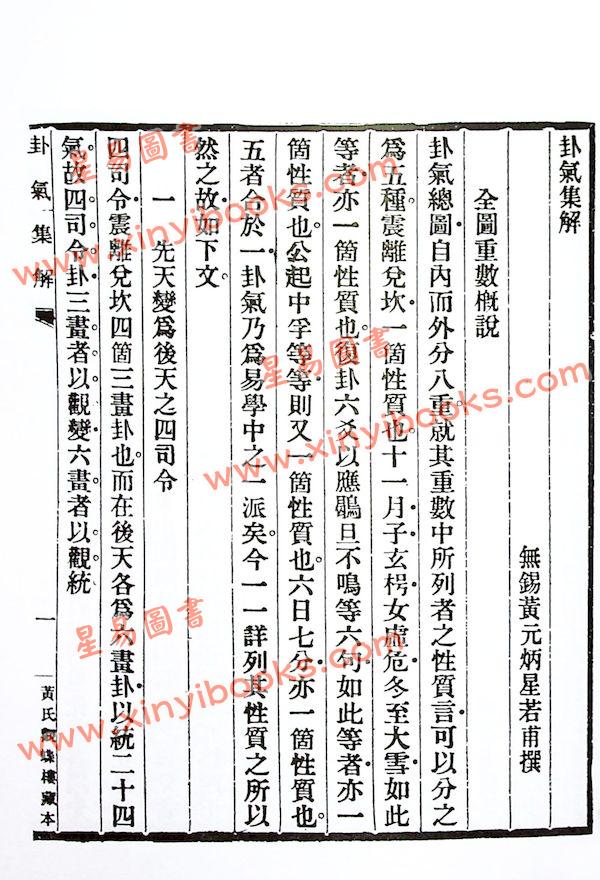 卦氣集解
無錫黃元炳星若甫撰
全圖重數概說
卦氣總圖自內而外分八重就其重數中所列者之性質言可以分之
爲五種震離兌坎一箇性質也十一月子玄枵女虛危冬至大雪如此
等者亦一箇性質也復卦六爻以應鶡旦不鳴等六句如此等者亦一
箇性質也公起中孚等等則又一箇性質也六日七分亦一箇性質也
五者合於一卦氣乃爲易學中之一派矣今一一詳列其性質之所以
然之故如下文
一 先天變爲後天之四司令
四司令震離兌坎四箇三畫卦也而在後天各爲六畫卦以統二十四
氣故四司令卦三畫者以觀變六畫者以觀統
卦氣集解
一
黃氏觀蝶樓藏本
星易圖書
www.xinyibooks.com
星易圖書
www.xinyibooks.com
星易圖書
www.xinyibooks.com